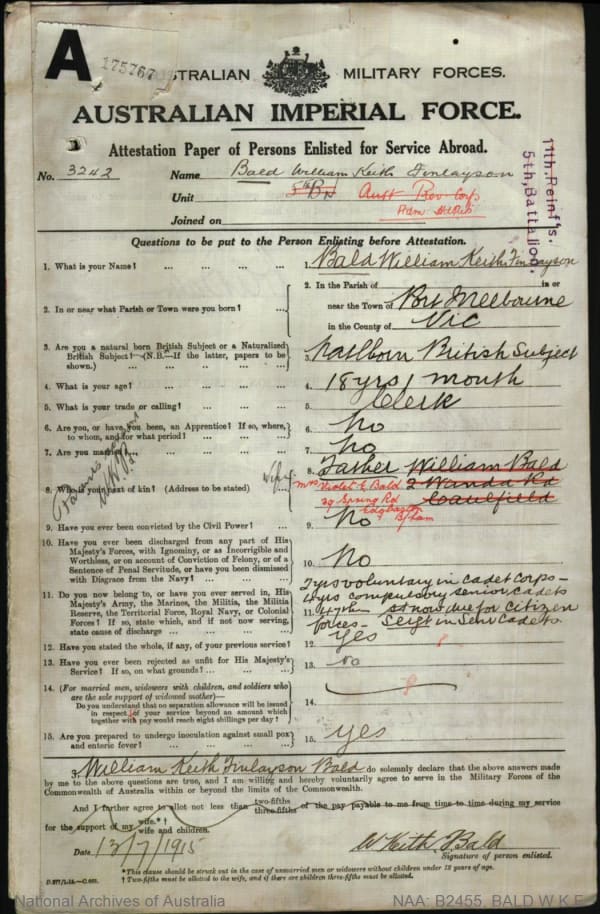 A
175767
AUSTRALIAN MILITARY FORCES.
AUSTRALIAN IMPERIAL FORCE.
Attestation Paper of Persons Enlisted for Service Abroad.
11th, Reinf's.
5th, Battalion.
No. 3242 Name Bald William Keith Finlayson
Unit 5th Bn Aust Prov Corps
Adm Hdqrs
Joined on
Questions to be put to the Person Enlisting before Attestation.
1. What is your Name? ... ... ... ... 1. Bald William Keith Finlayson
2. In or near what Parish or Town were you born? ... 2. In the Parish of in or
near the Town of Port Melbourne
in the County of Vic
3. Are you a natural born British Subject or a Naturalized British Subject? (N.B.—If the latter, papers to be shown.) ... ... ... ... 3. Natlborn British Subject
4. What is your age? ... ... ... ... 4. 18 yrs 1 month
5. What is your trade or calling? ... ... ... 5. Clerk
6. Are you, or have you been, an Apprentice? If so, where, to whom, and for what period? ... ... ... 6. No
7. Are you married? 7. No
8. Who is your next of kin? (Address to be stated) 8. Father William Bald
2 Wanda Rd
Caulfield
wife
Mrs Violet E Bald
39 Spring Rd
Edgbaston
B/ham
9. Have you ever been convicted by the Civil Power? ... 9. No
10. Have you ever been discharged from any part of His Majesty's Forces, with Ignominy, or as Incorrigible and Worthless, or on account of Conviction of Felony, or of a Sentence of Penal Servitude, or have you been dismissed with Disgrace from the Navy? ... ... ... 10. No
11. Do you now belong to, or have you ever served in, His Majesty's Army, the Marines, the Militia, the Militia Reserve, the Territorial Force, Royal Navy, or Colonial Forces? If so, state which, and if not now serving, state cause of discharge ... ... ... 11. 2yrs voluntary in Cadet Corps -
4yrs compulsory senior Cadets
47th & now due for Citizen
forces - Sergt in Senr Cadets
12. Have you stated the whole, if any, of your previous service? 12. Yes
13. Have you ever been rejected as unfit for His Majesty's Service? If so, on what grounds? ... ... 13. No
14. (For married men, widowers with children, and soldiers who are the sole support of widowed mother)—
Do you understand that no separation allowance will be issued in respect of your service beyond an amount which together with pay would reach eight shillings per day? 14.
15. Are you prepared to undergo inoculation against small pox and enteric fever? ... ... ... 15. Yes
I, William Keith Finlayson Bald do solemnly declare that the above answers made
by me to the above questions are true, and I am willing and hereby voluntarily agree to serve in the Military Forces of the
Commonwealth of Australia within or beyond the limits of the Commonwealth.
And I further agree to allot not less than two-fifths three-fifths of the pay payable to me from time to time during my service
for the support of my wife.* † wife and children.
Date 13/7/1915 W Keith F Bald
Signature of person enlisted.
*This clause should be struck out in the case of unmarried men or widowers without children under 18 years of age.
† Two-fifths must be allotted to the wife, and if there are children three-fifths must be allotted.
National Archives of Australia NAA: B2455, BALD W K F